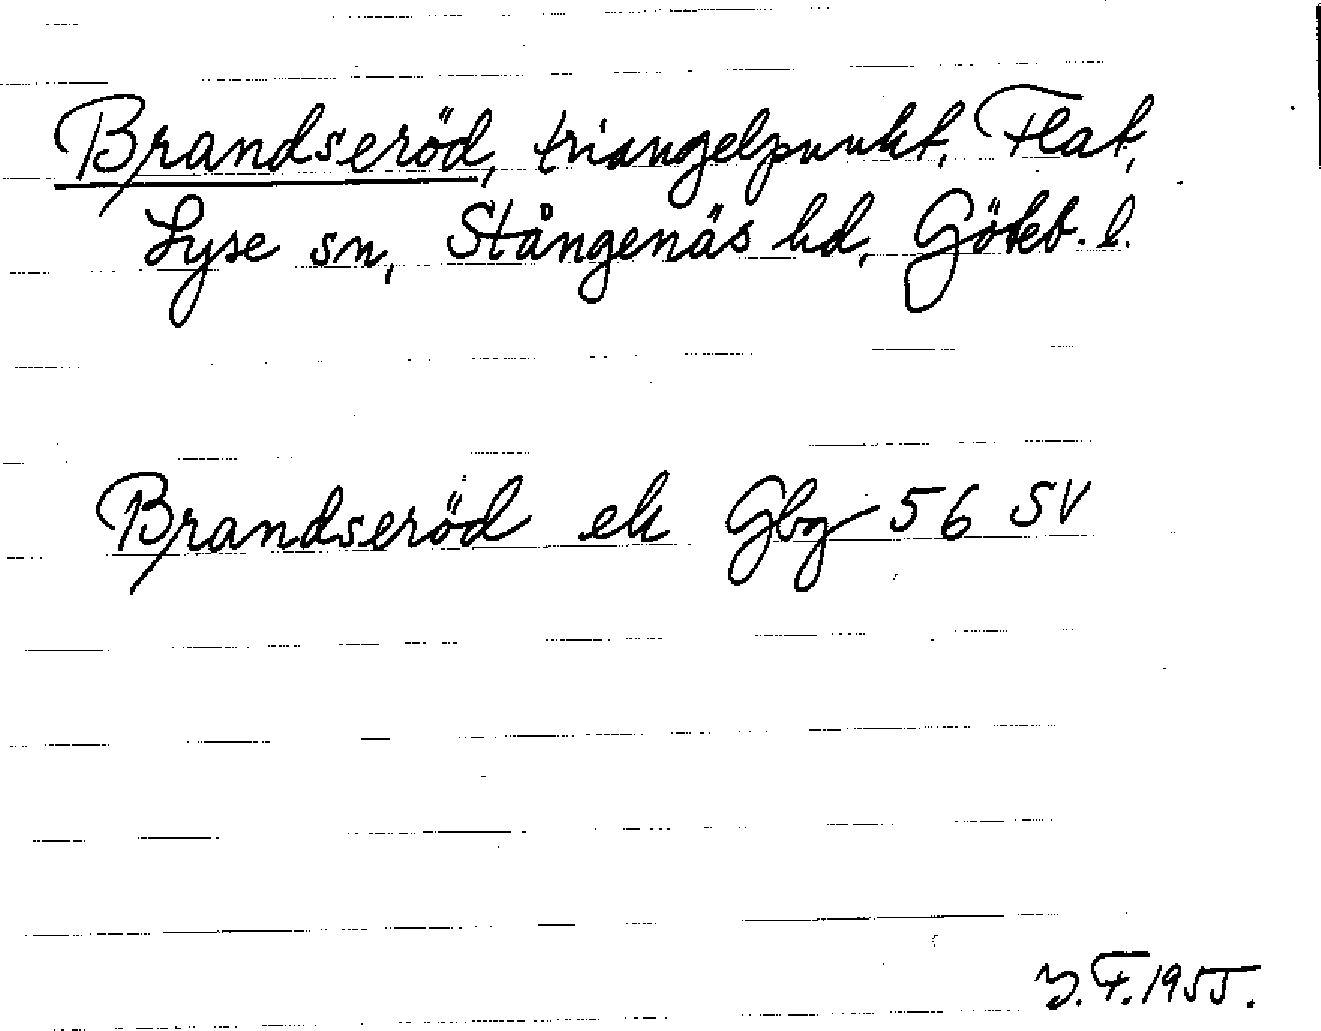 Brandseröd, triangelpunkt, Flat,
Lyse sn, Stångenäs hd, Göteb. l.
Brandseröd ek Gbg 56 SV
Y.F. 1955.